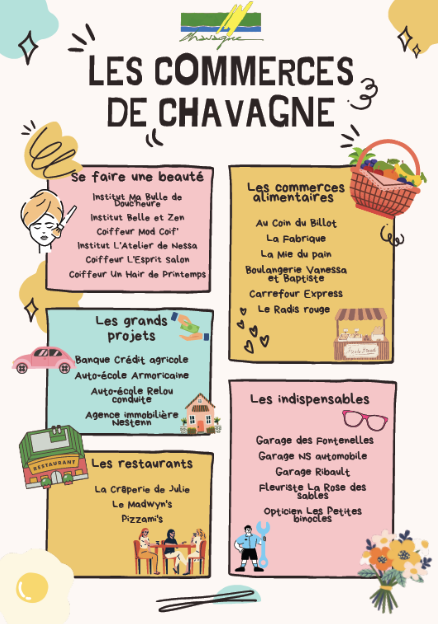 Chavagne
LES COMMERCES
DE CHAVAGNE
Se faire une beauté
Institut Ma Bulle de
Douc'heure
Institut Belle et Zen
Coiffeur Mod Coif'
Institut L'Atelier de Nessa
Coiffeur L'Esprit Salon
Coiffeur Un Hair de Printemps
Les commerces
alimentaires
Au Coin du Billot
La Fabrique
La Mie du pain
Boulangerie Vanessa
et Baptiste
Carrefour Express
Le Radis rouge
Les grands
projets
Banque Crédit agricole
Auto-école Armoricaine
Auto-école Relou
conduite
Agence immobilière
Nestenn
Les indispensables
Garage des Fontenelles
Garage NS automobile
Garage Ribault
Fleuriste La Rose des
sables
Opticien Les Petites
binocles
RESTAURANT
Les restaurants
La Crêperie de Julie
Le Madwyn's
Pizzami's